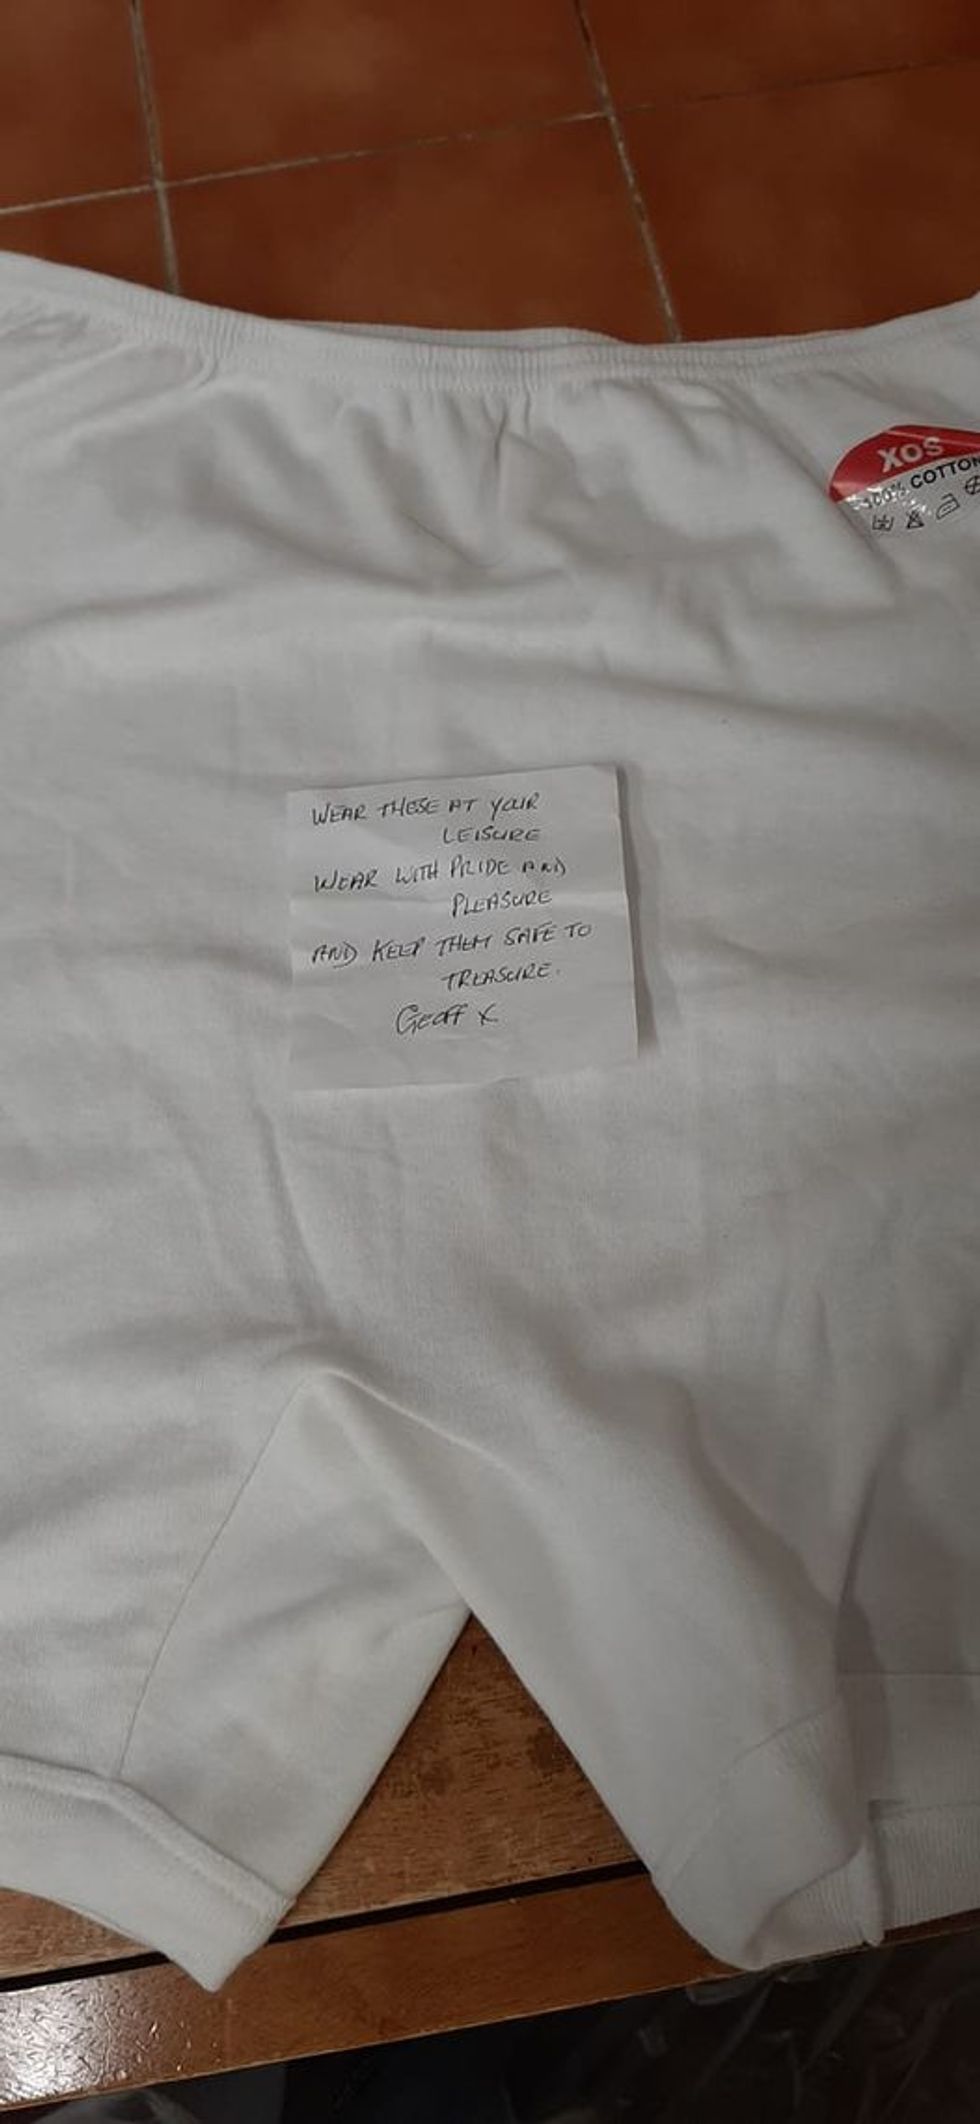 XOS
100% COTTON
WEAR THESE AT YOUR
LEISURE
WEAR WITH PRIDE AND
PLEASURE
AND KEEP THEM SAFE TO
TREASURE.
Geoff X